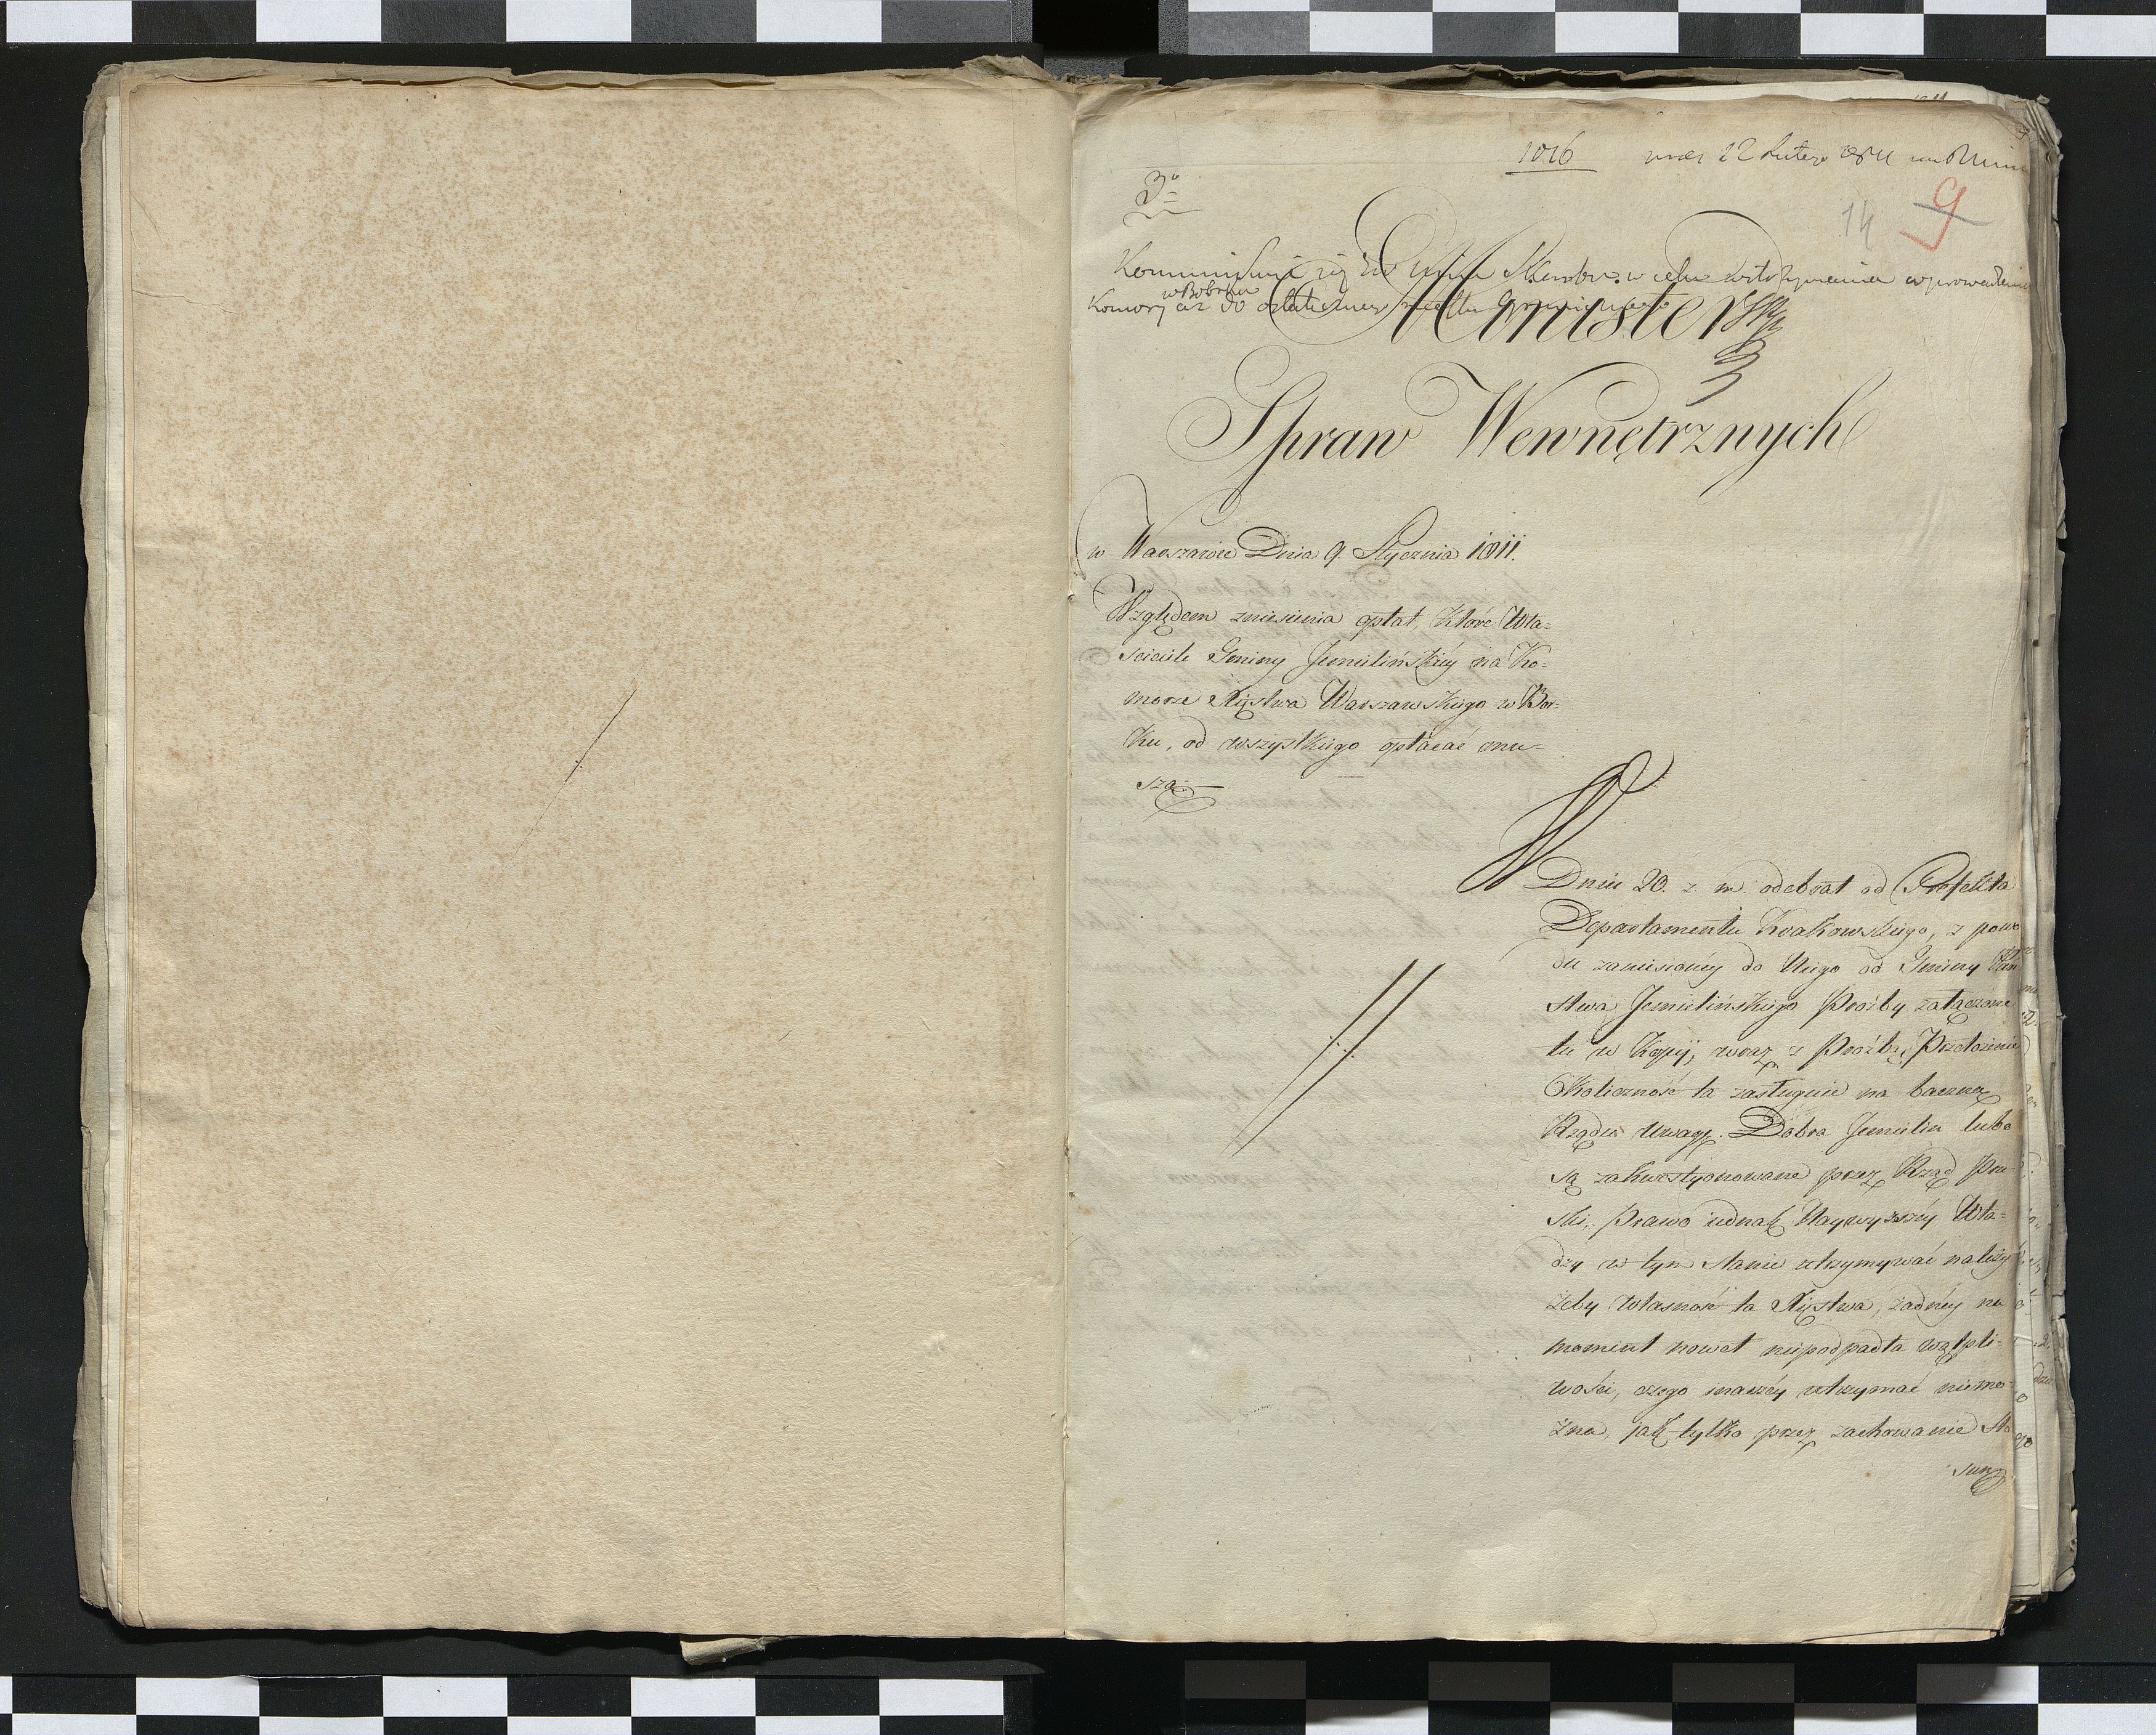 1016
22 Lutego 1811
3º
14 9
Kommunikuie się w celu wstrzymania wyprowadzenia
w Bobrku
Komory aż do
Minister
Spraw Wewnętrznych
w Warszawie Dnia 9. Stycznia 1811.
Względem zniesienia opłat, które Wła=
sciciele Gminy Jemielińskiéy na Ko=
morze Xięstwa Warszawskiego w Bor=
ku, od wszystkiego opłacać mu=
szą
W Dniu 20. z. m. odebrał od Prefekta
Departamentu Krakowskiego, z powo
du zaniesionéy do Niego od Gminy Pań
stwa Jemielińskiego Proźby załączone
tu w Kopij, wraz z Proźbą, Przełożenie
Okoliczność ta zasługuie na baczną
Rządu uwagę. Dobra Jemielin lubo
są zakwestyonowane przez Rząd Pru
ski, Prawo iednak Naywyższéy Wła=
dzy w tym stanie utrzymywać należy
żeby własność ta Xięstwa, żadnéy na
moment nawet niepodpadła wątpli=
wości, czego inaczéy utrzymać niemo=
żna, jak tylko przez zachowanie Sto
sunz